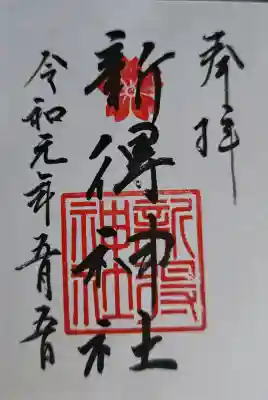 奉拝
新得神社
新得
神社
令和元年五月五日